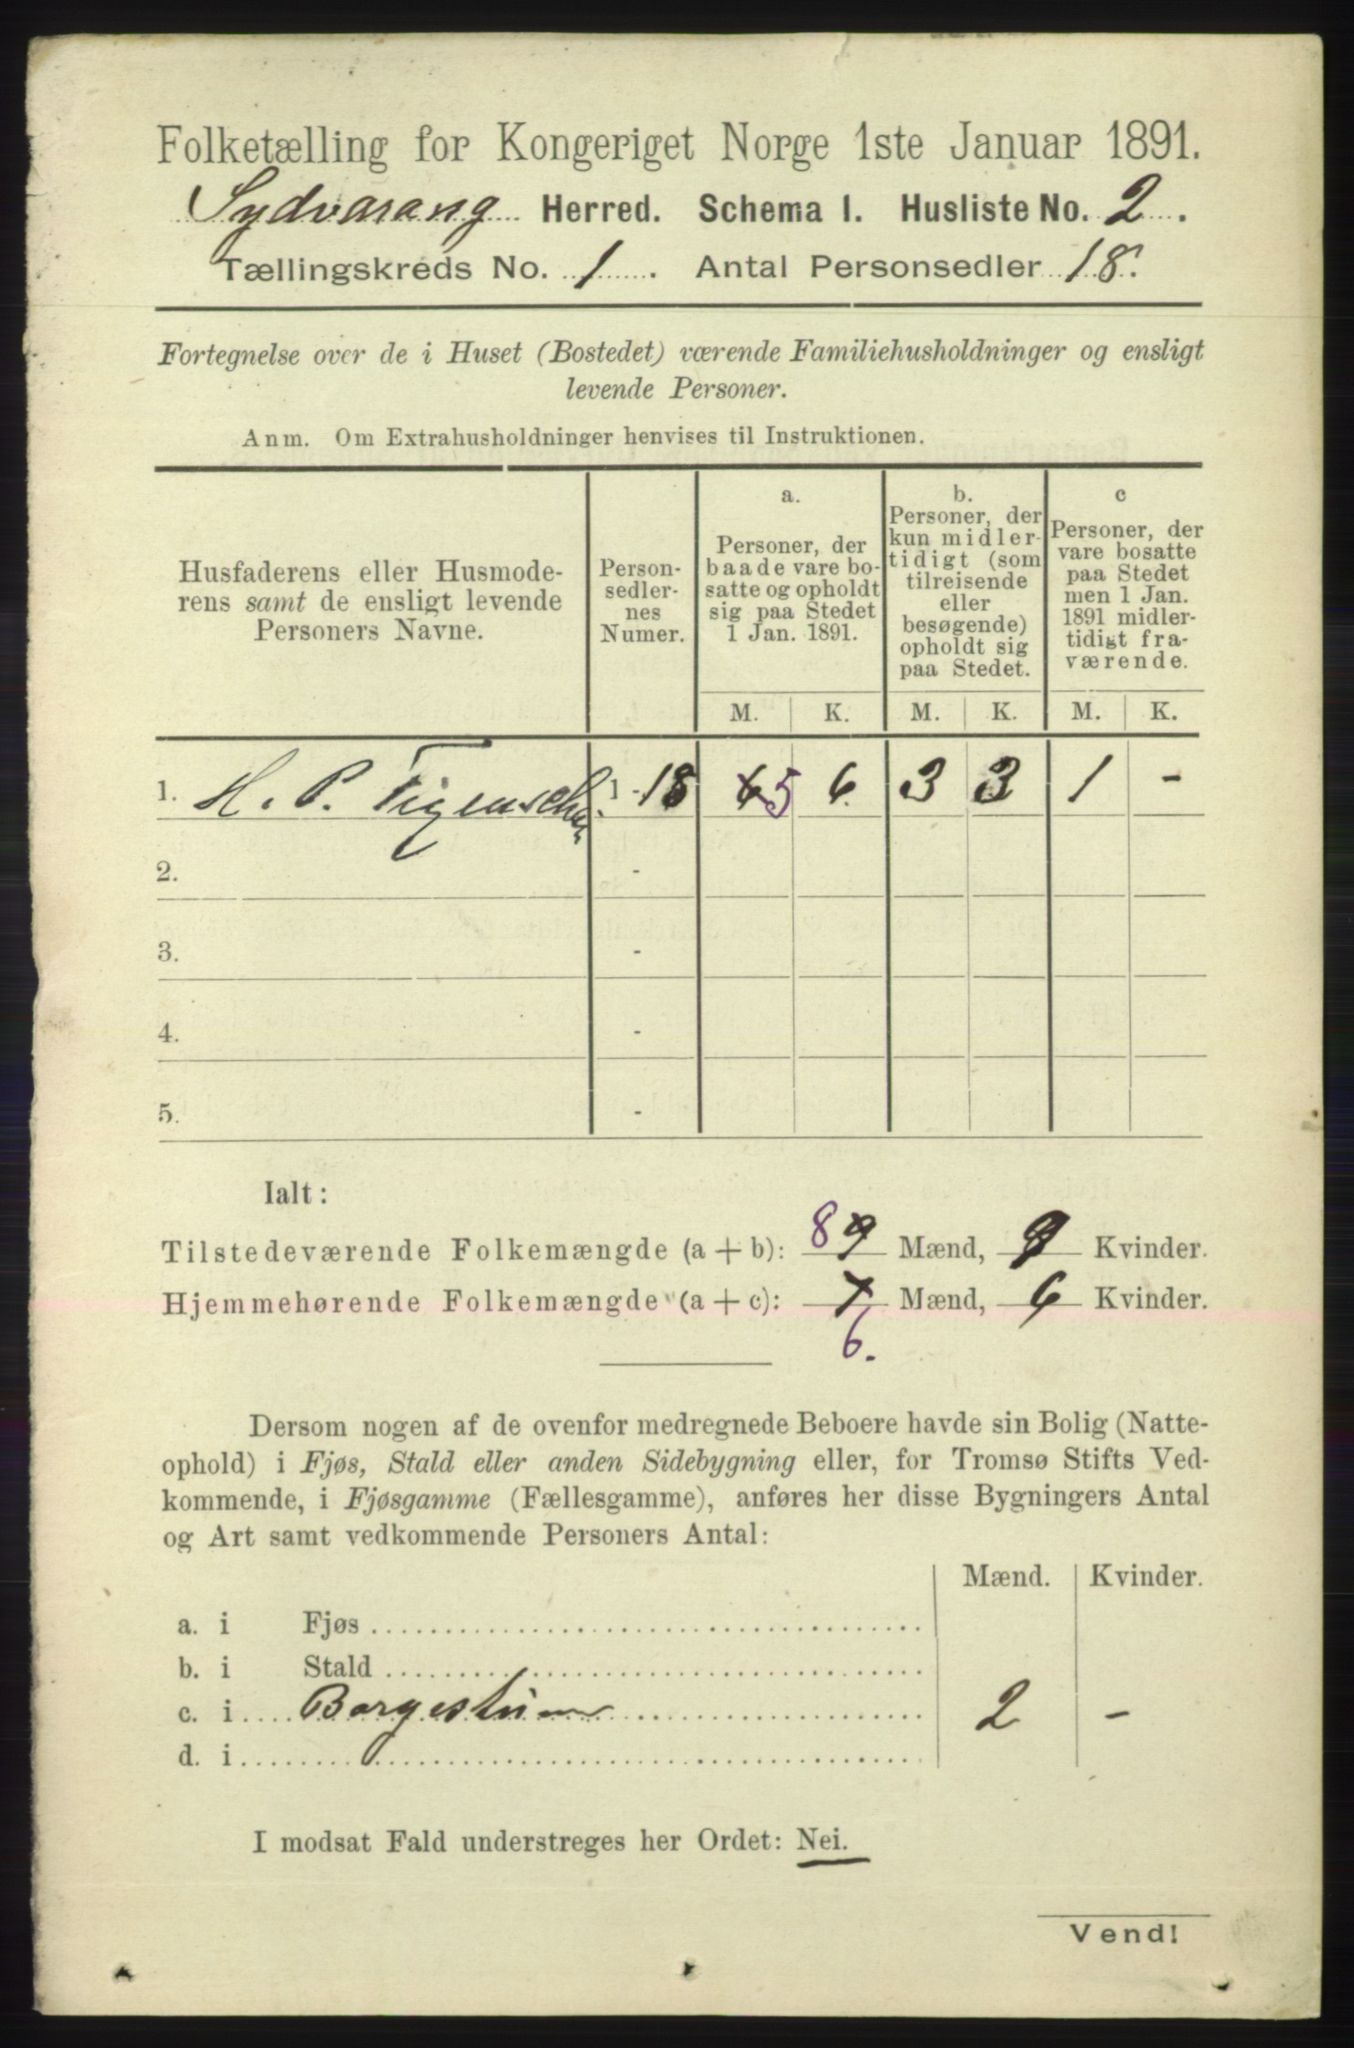 Folketælling for Kongeriget Norge 1ste Januar 1891.
Sydvarang Herred. Schema I. Husliste No. 2.
Tællingskreds No. 1. Antal Personsedler 18.
Fortegnelse over de i Huset (Bostedet) værende Familiehusholdninger og ensligt
levende Personer.
Anm. Om Extrahusholdninger henvises til Instruktionen.
Husfaderens eller Husmode-
rens samt de ensligt levende
Personers Navne.
Person-
sedler-
nes
Numer.
a.
Personer, der
baade vare bo-
satte og opholdt
sig paa Stedet
1 Jan. 1891.
b.
Personer, der
kun midler-
tidigt (som
tilreisende
eller
besøgende)
opholdt sig
paa Stedet.
c
Personer, der
vare bosatte
paa Stedet
men 1 Jan.
1891 midler-
tidigt fra-
værende.
M. K. M. K. M. K.
1. H. P. Figenschau 1-18 6 5 6 3 3 1 -
2. -
3. -
4. -
5. -
Ialt:
Tilstedeværende Folkemængde (a + b): 8 9 Mænd, 9 Kvinder.
Hjemmehørende Folkemængde (a + c): 7 Mænd, 6 Kvinder.
6.
Dersom nogen af de ovenfor medregnede Beboere havde sin Bolig (Natte-
ophold) i Fjøs, Stald eller anden Sidebygning eller, for Tromsø Stifts Ved-
kommende, i Fjøsgamme (Fællesgamme), anføres her disse Bygningers Antal
og Art samt vedkommende Personers Antal:
Mænd. Kvinder.
a. i Fjøs
b. i Stald
c. i Borgestuen 2 -
d. i
I modsat Fald understreges her Ordet: Nei.
Vend!